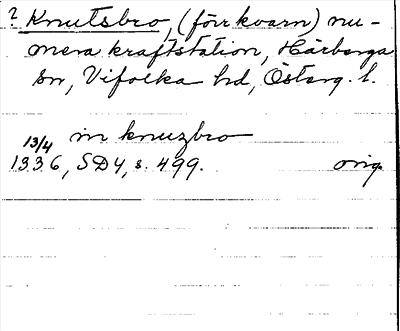 ? Knutsbro, (förr kvarn) nu-
mera kraftstation, Härberga
sn, Vifolka hd, Österg. l.
in knuzbro
13/4
1336, SD4, s. 499. orig.